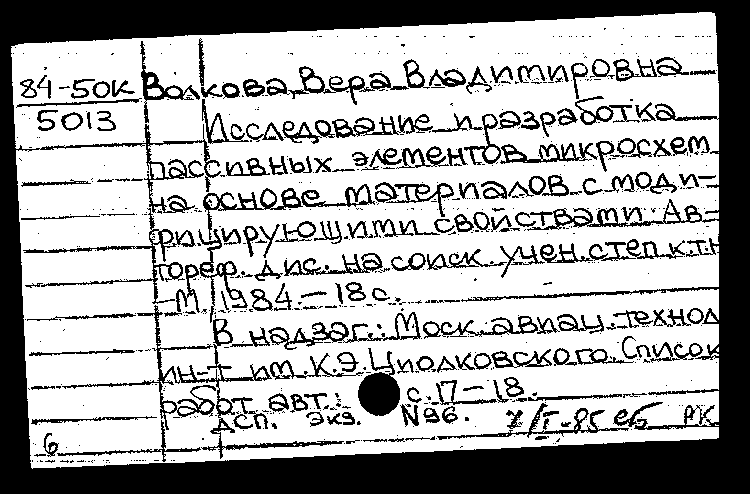 84-50к Волкова, Вера Владимировна
5013 Исследование и разработка
пассивных элементов микросхем
на основе материалов с моди-
фицирующими свойствами. Ав-
тореф. дис. на соиск. учен. степ. к.т.н
-М, 1984. - 18 с.
В надзаг.: Моск. авиац. технол
ин-т им. К.Э. Циолковского. Список
работ авт.: с. 17-18.
ДСП. экз. N96. 7/I-85 еб РК
6